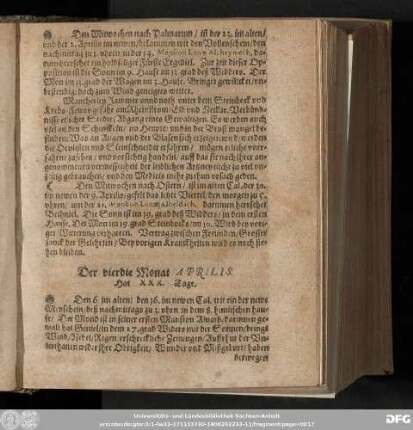 Den Mitwochen nach Palmarum / ist der 23. im alten /
vnd der 2. Aprilis im newen / bekommen wir den Vollenschein / den
nachmittag zu 3. vhren in der 14. Mansion Lunæ Alchymech, da-
rinnen herrschet ein holdseliger Fürste Ergediel. Zur zeit dieser Op-
position ist die Sonn im 9. Hause im 13. grad deß Widders. Der
Mon im 13. grad der Wagen im 3. Hause. Bringet gewülcket / vn-
bestendig / doch zum Wind geneigtes wetter.
Mancherley Jammer vnd noth vnter dem Steinbock vnd
Krebs / Krieg am Rheinstrom Elb vnd Neckar. Verbünd-
nisse etlicher Abgang eines Gewaltigen. Es werden auch
viel an den Schenckeln / im Heupte / vnd in der Brust mangel be-
finden: Was an Augen vnd der Blasen sich ereigen wil / werden
die Oculisten vnd Steinschneider erfahren / mögen
sehen / vnd vorsichtig handeln / auff das sie nach ihrer an-
genommenen vermessenheit der leiblichen Artzney nicht zu viel
gebrauchen / vnd den Medicis nicht zu thun vrsach geben.
Den Mitwochen nach Ostern / ist im alten Cal. der 30.
im newen der 9. Aprilis / gefelt das letzte Viertel / den morgen zu
vhren / in der 21. Mansion Lunæ darinnen herrschet
Bethnael. Die Sonn ist im 19. grad deß Widders / in dem ersten
Hause. Der Mon im 19. grad Steinbocks / im 10. Wird bey vori-
ger Witterung verharren. Vertrag zwischen Freunden /
zanck der Gelehrten / Bey vorigen Kranckheiten wird es noch
bleiben.
Der vierdte Monat APRILIS
Hat XXX. Tage.
Den 6. im alten / den 16. im newen Cal. tritt ein der newe
Monschein / deß nachmittags zu 2. vhrn in dem 8. himlischen hau-
se / Der Mond ist in seiner ersten Mansion Alnath, darinnen ge-
walt hat Geniel / in dem 27. grad Widders mit der Sonnen / brings
Wind / Nebel / Regen / erschreckliche Zeitungen / Auffrhur der Vn-
terthanen wider ihre Obrigkeit / Wunder vnd Mißgeburt / haben
bewegen
Universitäts- und Landesbibliothek Sachsen-Anhalt
DFG